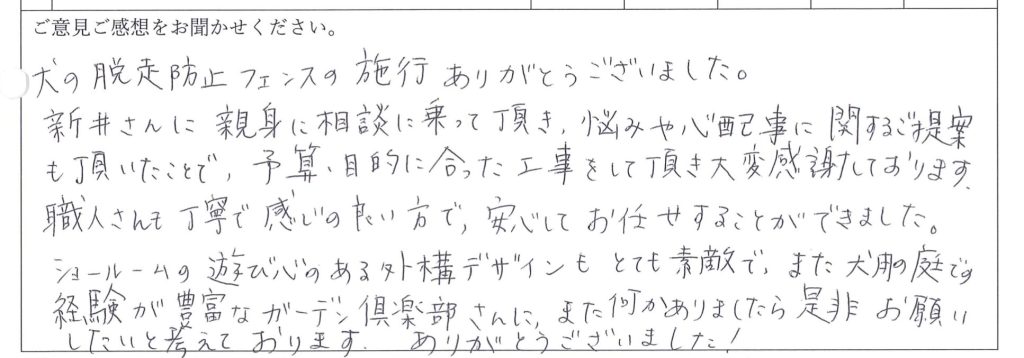 ご意見ご感想をお聞かせください。
犬の脱走防止フェンスの施行ありがとうございました。
新井さんに親身に相談に乗って頂き、悩みや心配事に関するご提案
も頂いたことで、予算、目的に合った工事をして頂き大変感謝しております。
職人さんも丁寧で感じの良い方で、安心してお任せすることができました。
ショールームの遊び心のある外構デザインもとても素敵で、また犬用の庭での
経験が豊富なガーデン倶楽部さんに、また何かありましたら是非お願い
したいと考えております。ありがとうございました！